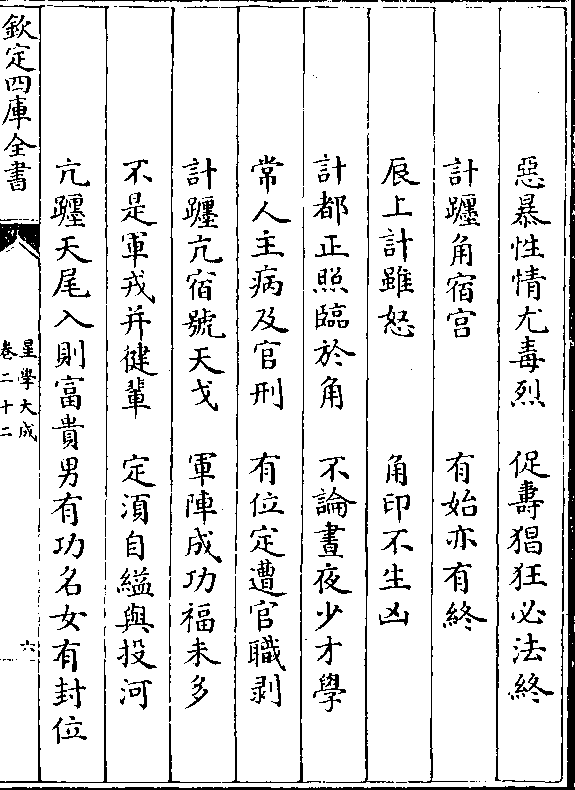 惡暴性情尤毒烈　促壽猖狂必法終
計躔角宿宫　有始亦有終
辰上計雖怒　角印不生凶
計都正照臨於角　不論晝夜少才學
常人主病及官刑　有位定遭官職剥
計躔亢宿號天戈　軍陣成功福未多
不是軍戎并健輩　定須自縊與投河
亢躔天尾入則富貴男有功名女有封位
欽定四庫全書
星學大成
卷二十二
六